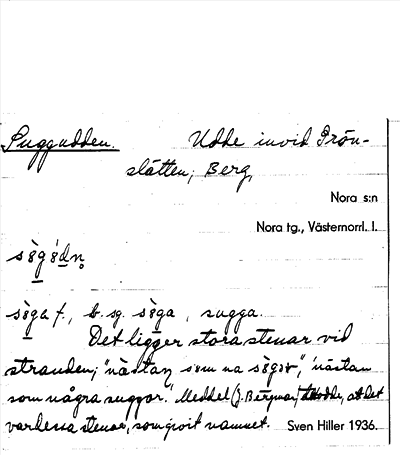 Suggudden. Udde invid Prön-
slåtten, Berg,
Nora s:n
Nora tg., Västernorrl. l.
sèg f., b. sg. sèga, sugga.
Det ligger stora stenar vid
stranden, "nästan som na sègər", 'nästan
som några suggor.' Meddel. (J. Bergman) trodde, att det
var dessa stenar, som givit namnet. Sven Hiller 1936.